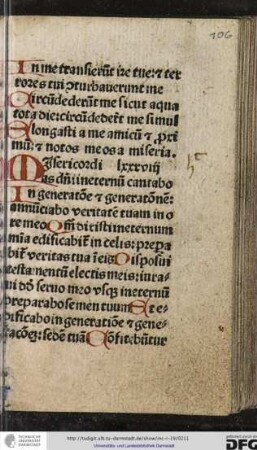 106
In me transierūt ire tue: ⁊ ter
rores tui ꝯturbauerunt me
Circūdederūt me sicut aqua
tota die: circūdederūt me simul
Elongasti a me amicū ⁊ ꝓxi
mū: ⁊ notos meos a miseria.
Misericordi lxxxviij
as dn̄i in eternū cantabo
In generatōe ⁊ generatōnē:
annūciabo veritatē tuam in o
re meo Qm̄ dixisti in eternum
mīa edificabit̄ in celis: prepa
bit̄ veritas tua ī eis Disposui
testamentū electis meis: iura
ui dd̄ seruo meo vsq; in eternū
preparabo semen tuum Et e
dificabo in generatiōe ⁊ gene
ratōez: sedē tuā Cōfitebūtur
http://tudigit.ulb.tu-darmstadt.de/show/inc-ii-19/0211
Universitäts- und Landesbibliothek Darmstadt
DFG